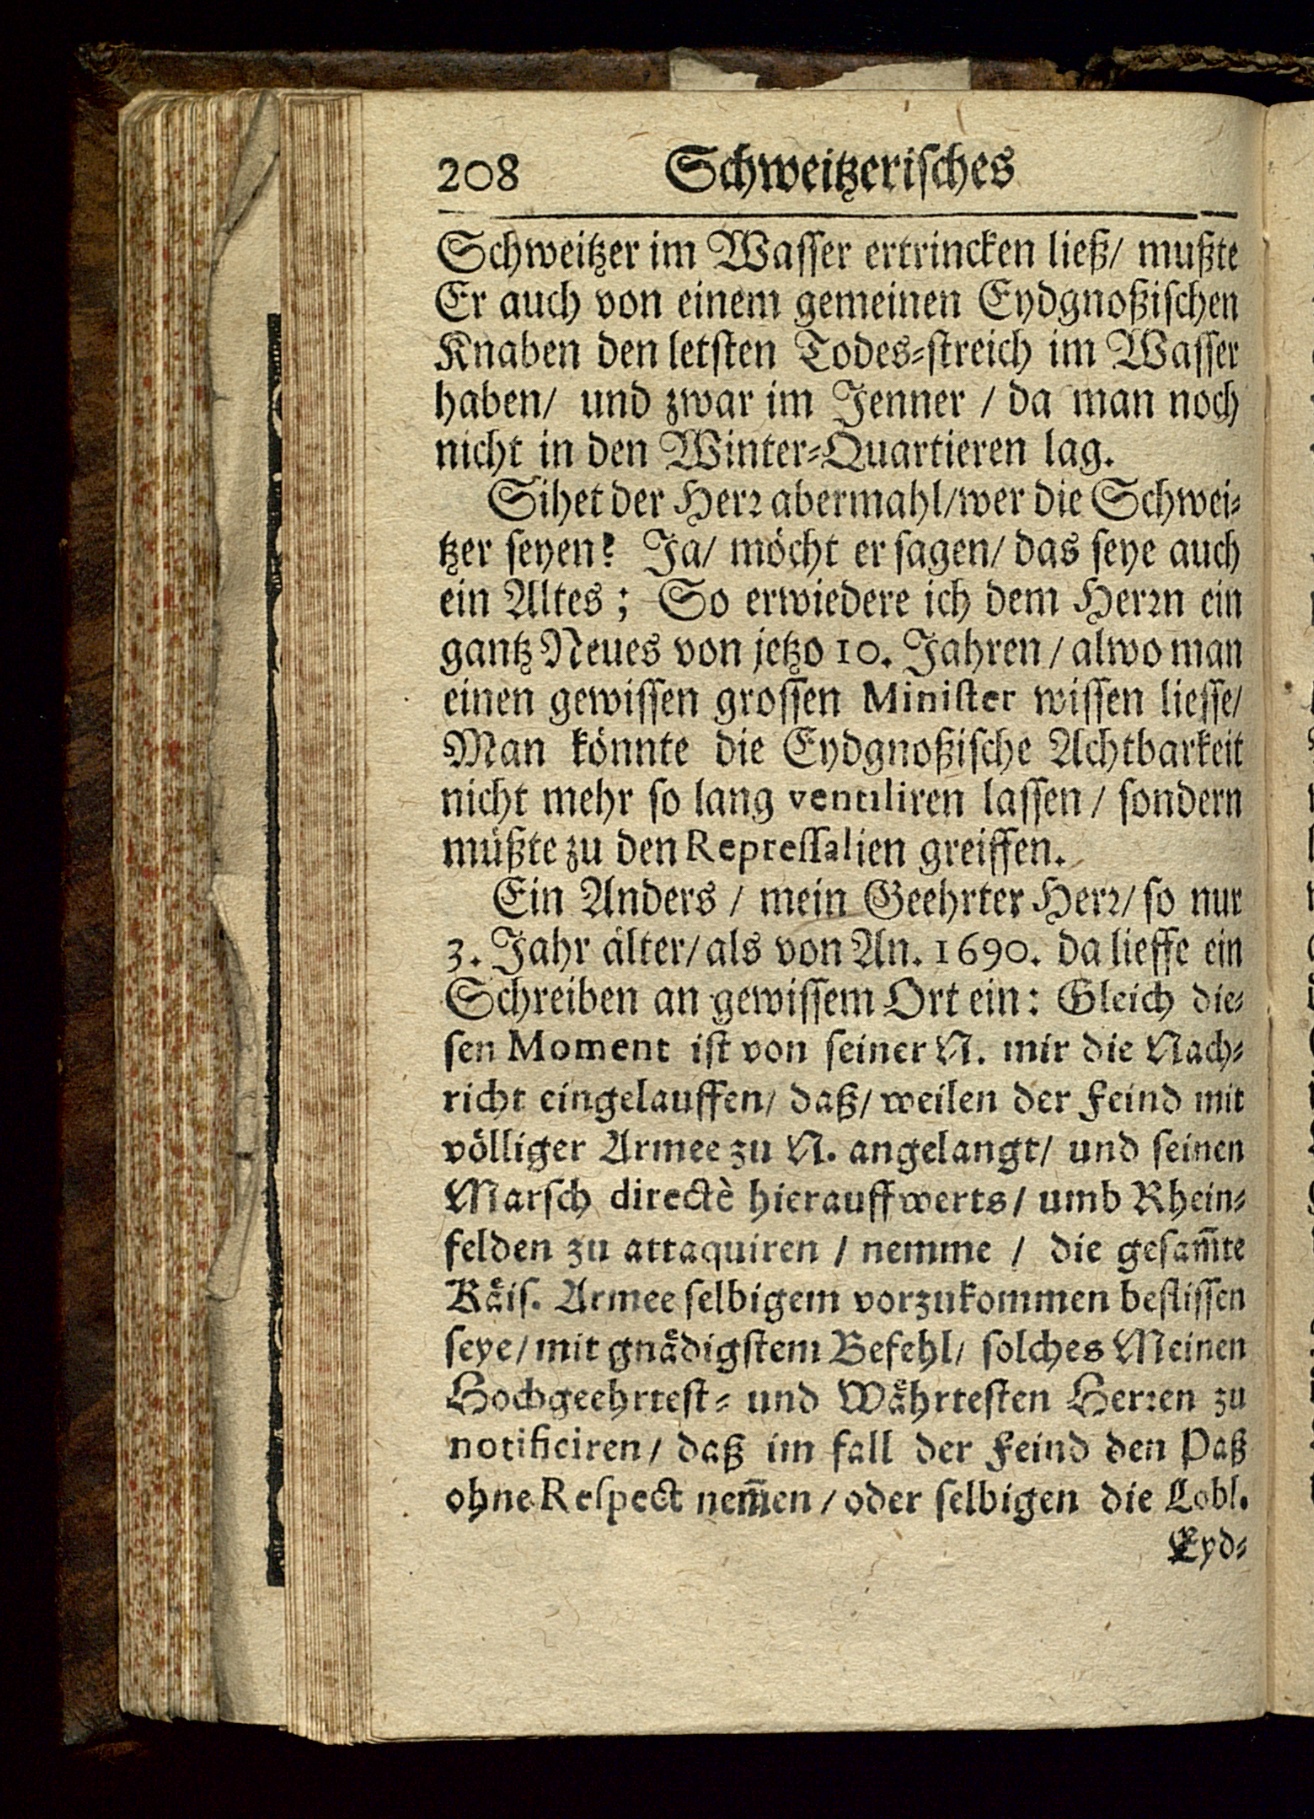 208 Schweitzerisches
Schweitzer im Wasser ertrincken ließ/ mußte
Er auch von einem gemeinen Eydgnoßischen
Knaben den letsten Todes-streich im Wasser
haben/ und zwar im Jenner / da man noch
nicht in den Winter-Quartieren lag.
Sihet der Herr abermahl/wer die Schwei-
tzer seyen? Ja/ möcht er sagen/ das seye auch
ein Altes; So erwiedere ich dem Herrn ein
gantz Neues von jetzo 10. Jahren / alwo man
einen gewissen grossen Minister wissen liesse/
Man könnte die Eydgnoßische Achtbarkeit
nicht mehr so lang ventiliren lassen / sondern
müßte zu den Repressalien greiffen.
Ein Anders / mein Geehrter Herr/ so nur
3. Jahr älter/als von An. 1690. da lieffe ein
Schreiben an gewissem Ort ein: Gleich die-
sen Moment ist von seiner N. mir die Nach-
richt eingelauffen/ daß/ weilen der Feind mit
völliger Armee zu N. angelangt/ und seinen
Marsch directè hierauffwerts / umb Rhein-
felden zu attaquiren / nemme / die gesam̄te
Käis. Armee selbigem vorzukommen beflissen
seye/ mit gnädigstem Befehl/ solches Meinen
Hochgeehrtest- und Währtesten Herren zu
notificiren/ daß im fall der Feind den Paß
ohne Respect nem̄en / oder selbigen die Lobl.
Eyd-